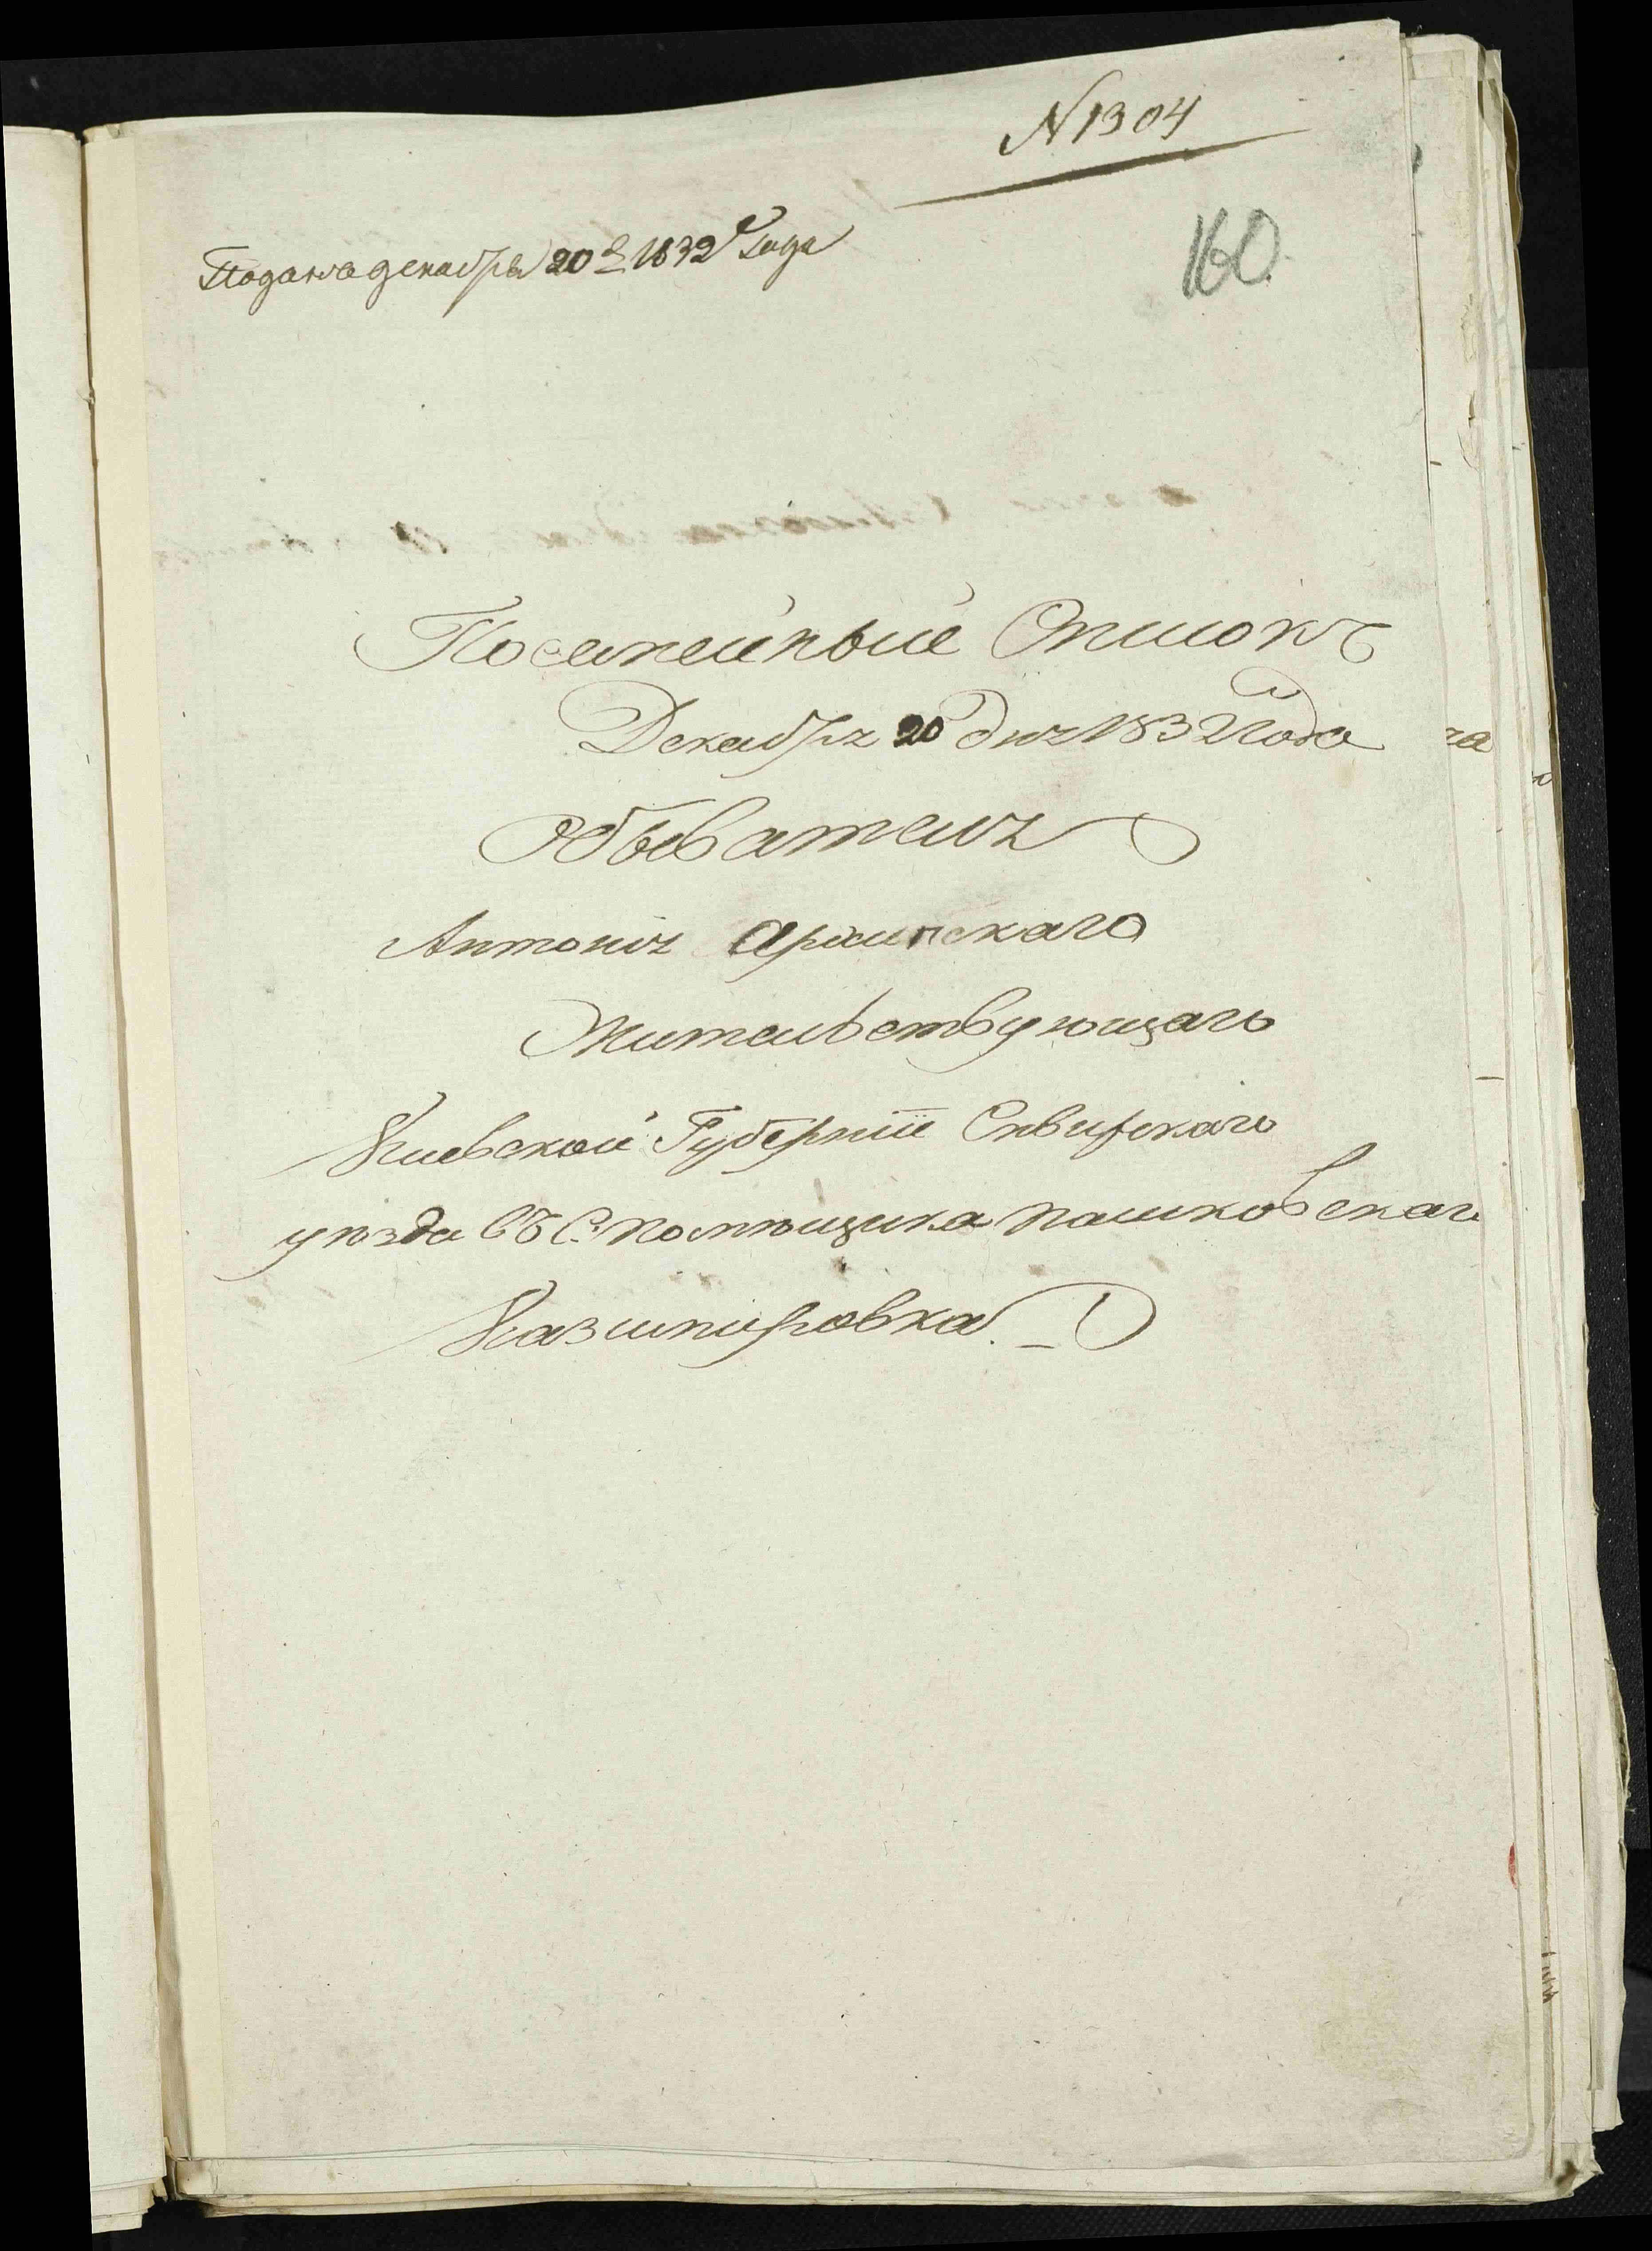 N 1304
160
Подана декабря 20 д 1832 года
Посемейные Списокъ
Декабря 20 дня 1832 года
Обывателя
Антонія
Жительствующаго
Киевской Губерніи Сквирскаго
уѣзда въ С. помѣщика Пашковскаг
Казимировка